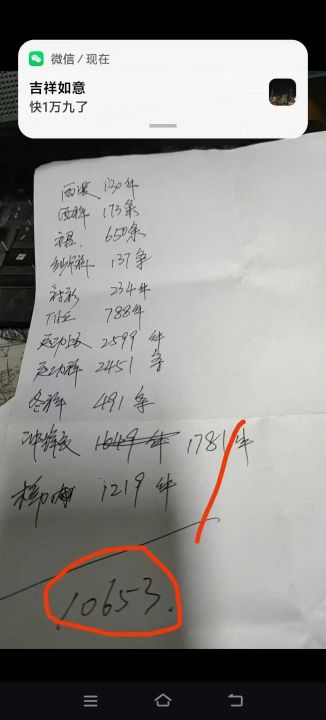 微信 / 现在
吉祥如意
快1万九了
西装 130件
西裤 173条
650条
137条
衬衫 234件
T恤 788件
运动衣 2599 件
运动裤 2451 条
冬裤 491 条
冲锋衣 1649 件 1781件
1219 件
10653.